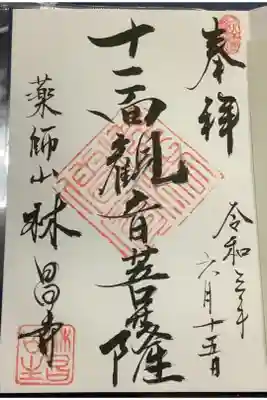 奉拝
令和三年
六月十五日
十一面観音菩薩
薬師山 林昌寺